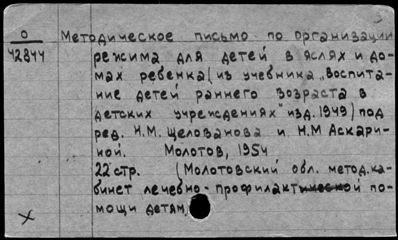 О Методическое письмо по организации
42844 режима для детей в яслях и до-
мах ребенка (из учебника "Воспита-
ние детей раннего возраста в
детских учреждениях" изд. 1949) под
ред. Н.М. Щелованова и Н.М Аскари-
ной. Молотов, 1954
22 стр. (Молотовский обл. метод. ка-
бинет лечебно-профилактической по-
мощи детям)
x